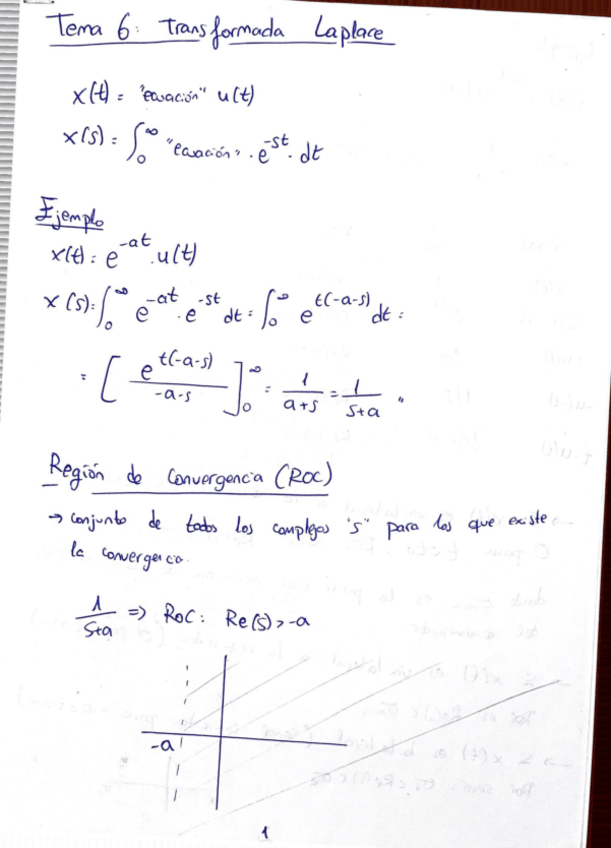 Tema 6: Transformada Laplace
x(t) = "ecuación" u(t)
x(s) = ∫₀^∞ "ecuación" · e^(-st) · dt
Ejemplo
x(t) = e^(-at) · u(t)
x(s) = ∫₀^∞ e^(-at) · e^(-st) dt = ∫₀^∞ e^(t(-a-s)) dt =
= [ e^(t(-a-s)) / (-a-s) ]₀^∞ = 1/(a+s) = 1/(s+a) "
Región de Convergencia (ROC)
→ conjunto de todos los complejos "s" para los que existe
la convergencia.
1/(s+a) => ROC: Re(s) > -a
-a
1